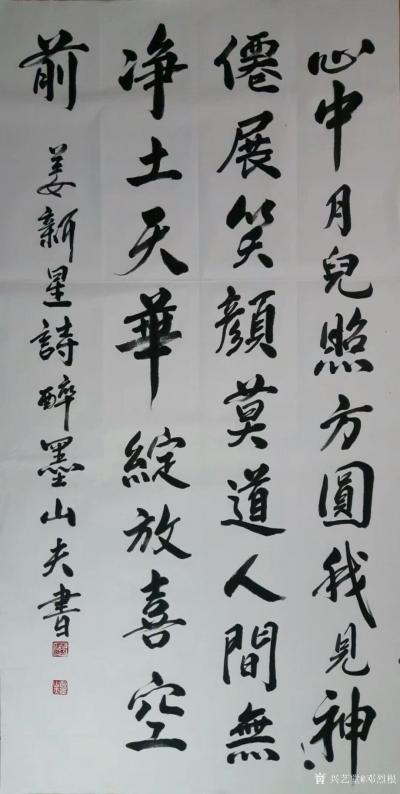 心中月兒照方圓我見神
僊展笑顏莫道人間無
淨土天華綻放喜空
前
姜新星詩醉墨山夫書
兴艺堂@邓烈根